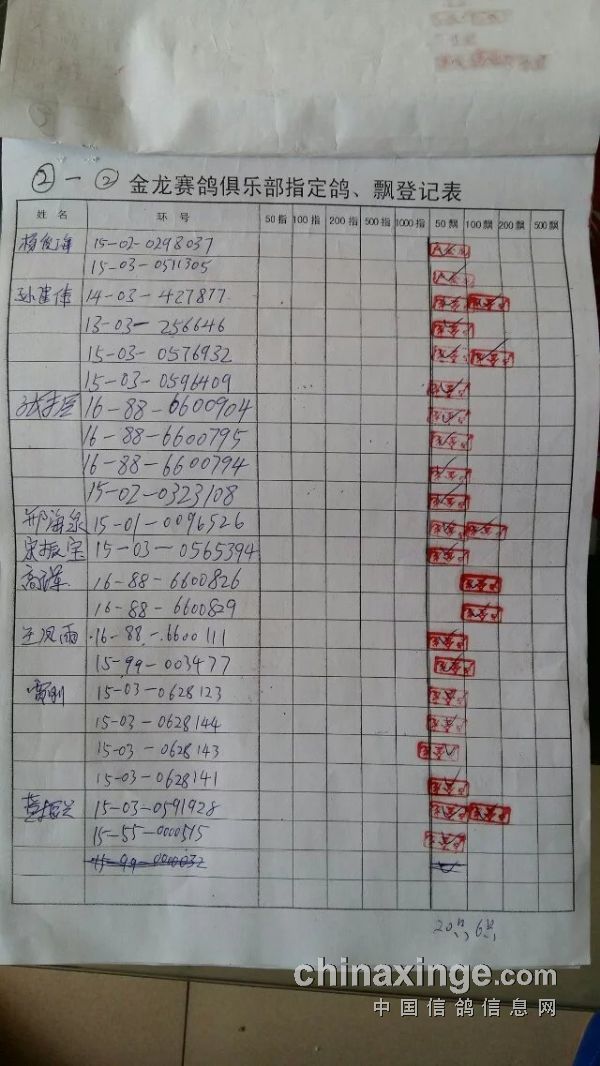 ②一② 金龙赛鸽俱乐部指定鸽、飘登记表
姓 名 环 号 50指 100指 200指 500指 1000指 50飘 100飘 200飘 500飘
15-02-0298037
15-03-0511305
孙建伟 14-03-427877
13-03-256646
15-03-0576932
15-03-0596409
16-88-6600904
16-88-6600795
16-88-6600794
15-02-0323108
邢海泉 15-01-0096526
宋振宝 15-03-0565394
16-88-6600826
16-88-6600829
王风雨 16-88-6600111
15-99-003477
雷刚 15-03-0628123
15-03-0628144
15-03-0628143
15-03-0628141
15-03-0591928
15-55-0000515
15-99-0000032
20 6
chinaxinge.com
中国信鸽信息网